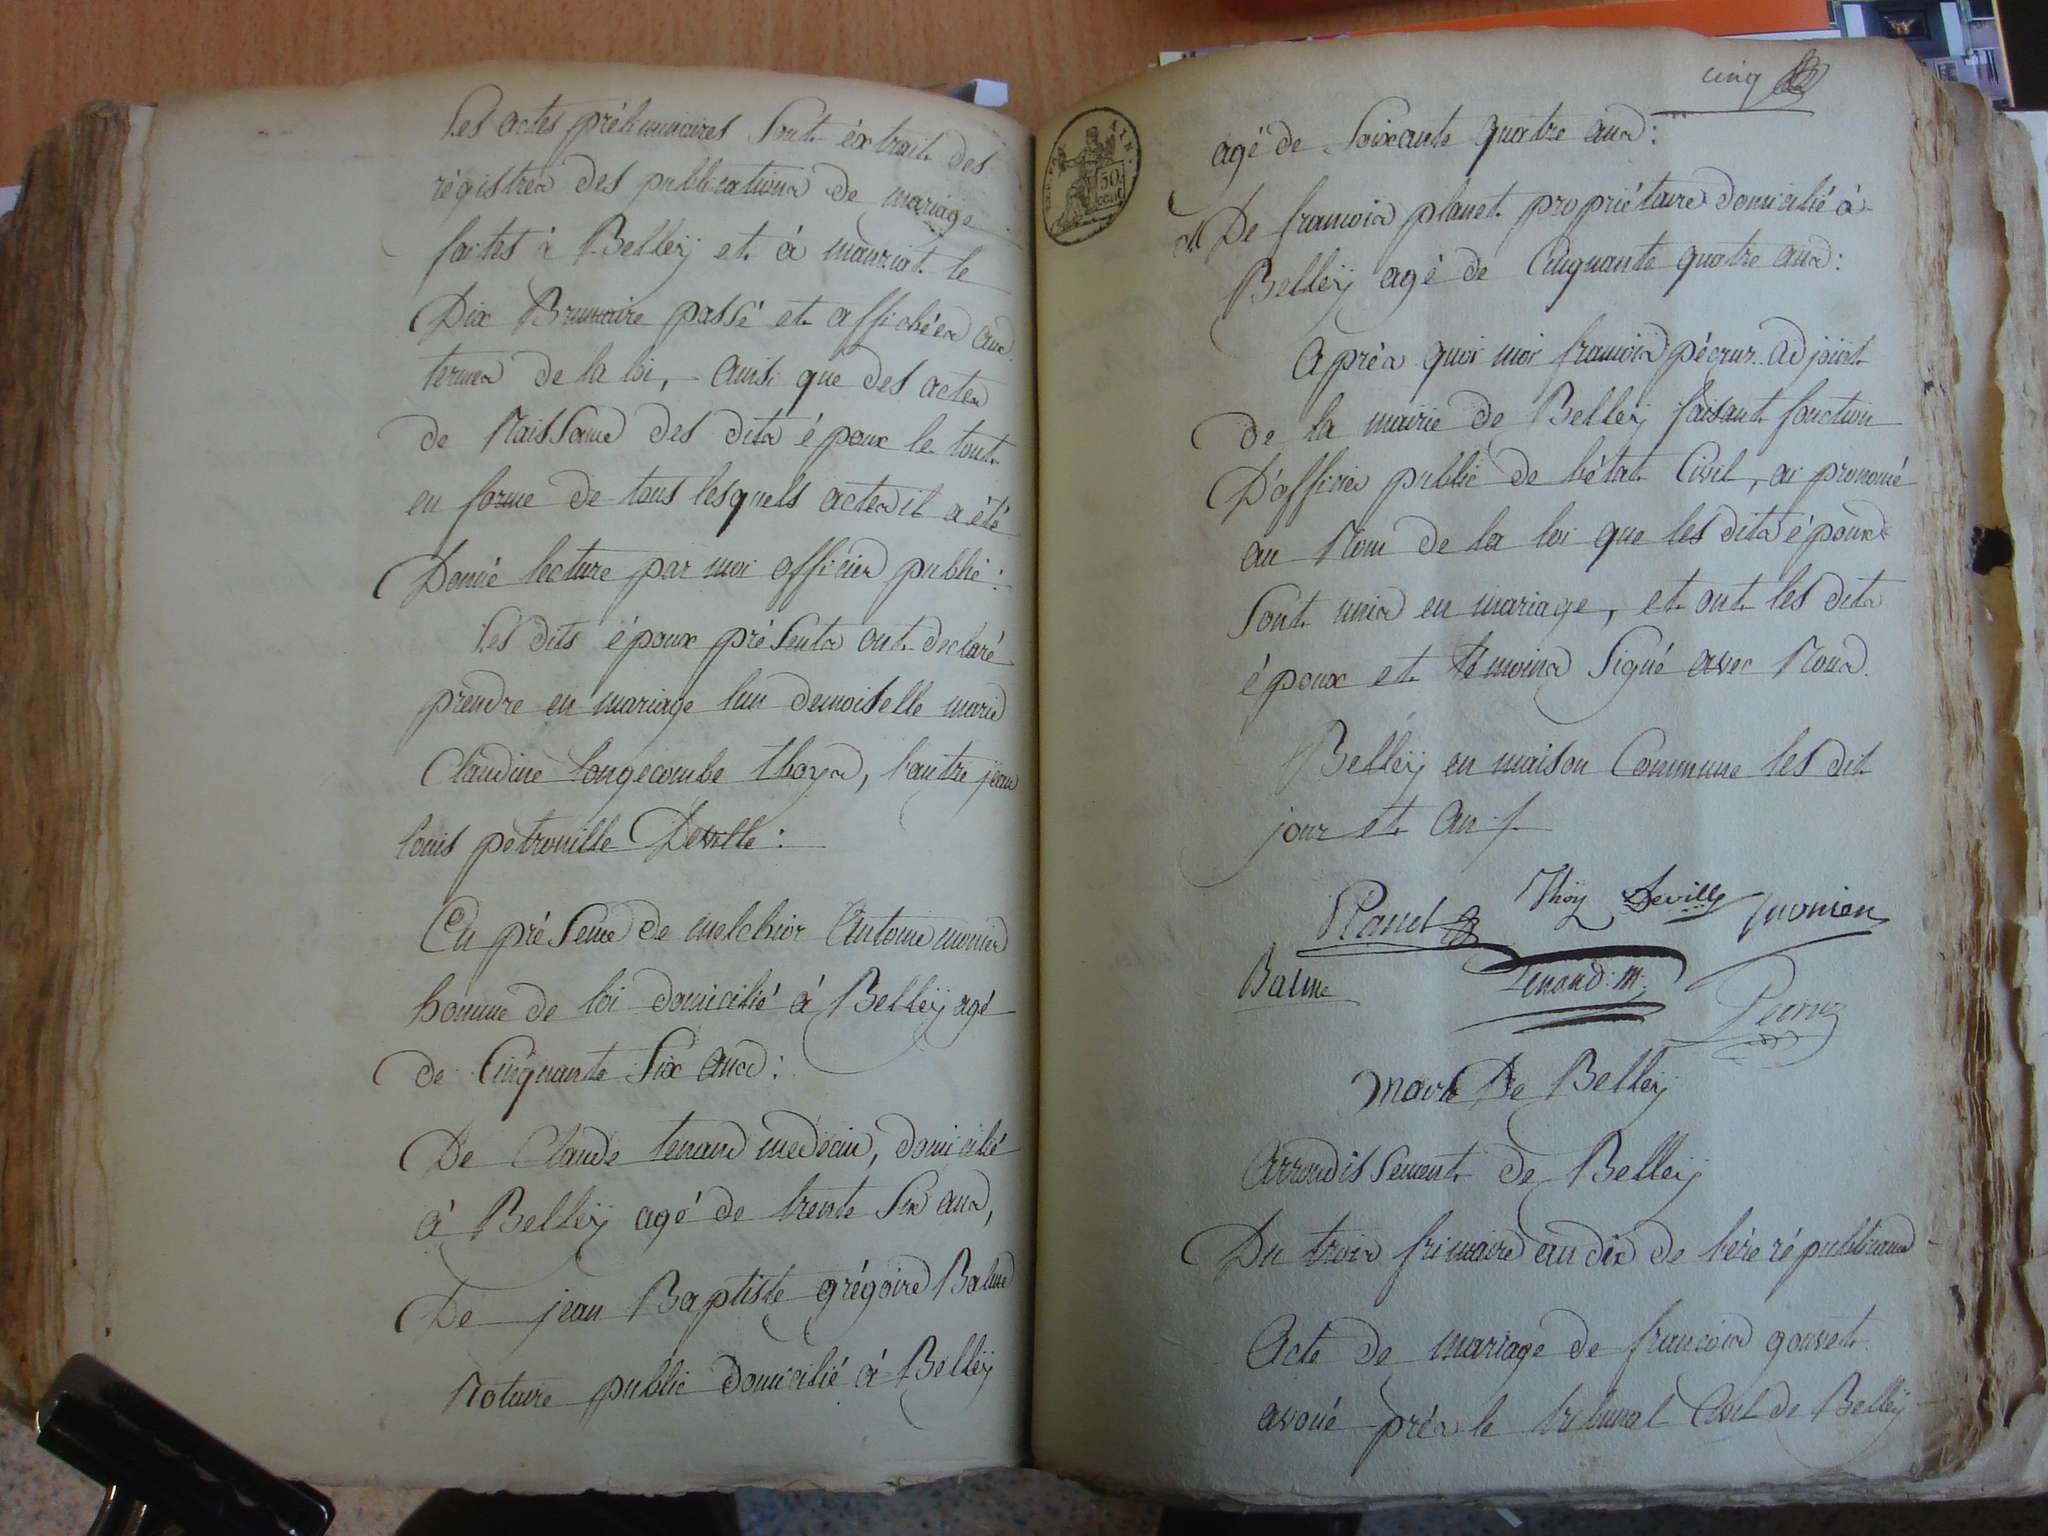 les actes préliminaires sont éxtrait des
régistres des publications de mariage
faites à Belleÿ et à mauriat le
Dix Brumaire passé et affichées aux
termes de la loi, ainsi que des actes
de Naissance des dits époux le tout
en forme de tous lesquels actes il a été
Donné lecture par moi officier public :
les dits époux présents ont declaré
prendre en mariage lun demoiselle marie
Claudine longecombe thoy, l'autre jean
louis petronille Deville :
En présence de melchior Antoine monier
homme de loi domicilié à Belleÿ agé
de Cinquante Six ans :
De Claude tenand medecin, domicilié
à Belleÿ agé de trente Six ans,
De jean Baptiste grégoire Balme
Notaire public domicilié à Belleÿ
cinq
50 cent
agé de Soixante quatre ans :
De francois planet propriétaire domicilié à
Belleÿ agé de Cinquante quatre ans :
Après quoi moi francois pécruz adjoint
de la mairie de Belleÿ faisant fonction
D'officier public de l'état Civil, ai prononcé
au Nom de la loi que les dits époux
Sont unis en mariage, et ont les dits
époux et témoins Signé avec Nous.
Belleÿ en maison Commune les dit
jour et an
Planet Thoy Deville monier
Balme Tenand. m. Pecruz
mairie De Belleÿ
Arrondissement de Belleÿ
Du trois frimaire an dix de l'ère républicaine
Acte de mariage de francois gouvet
avoué près le tribunal Civil de Belleÿ